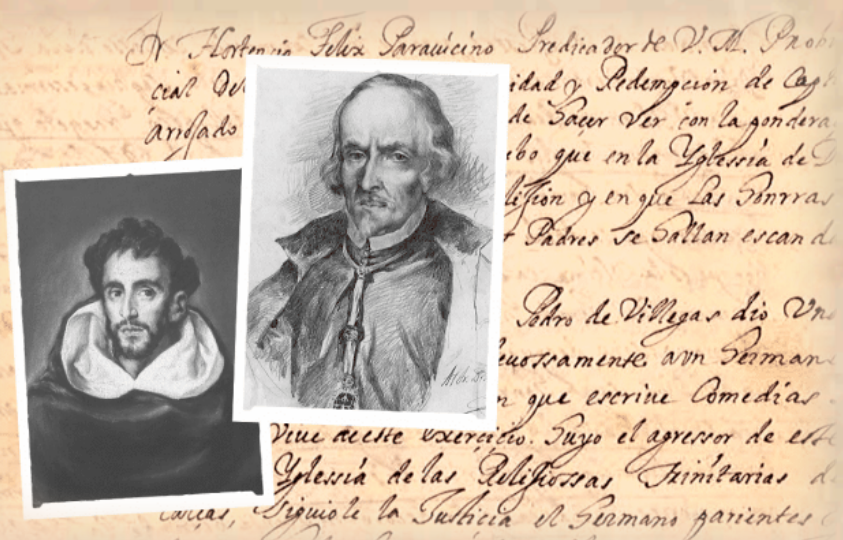 Hortensio Felix Parauicino Predicador de V. M. Prob
cial Del idad y Redempcion de Cas
arrojado de hacer ver con la pondera
ebo que en la Yglessia de D
ligion y en que Las honrras
Padres se hallan escand
Pedro de Villegas dio Vn
euossamente a vn hermano
n que escriue Comedias
viue de este exercicio. huyo el agressor de est
Yglessia de las Religiossas Trinitarias d
siguiole la Justicia el hermano parientes